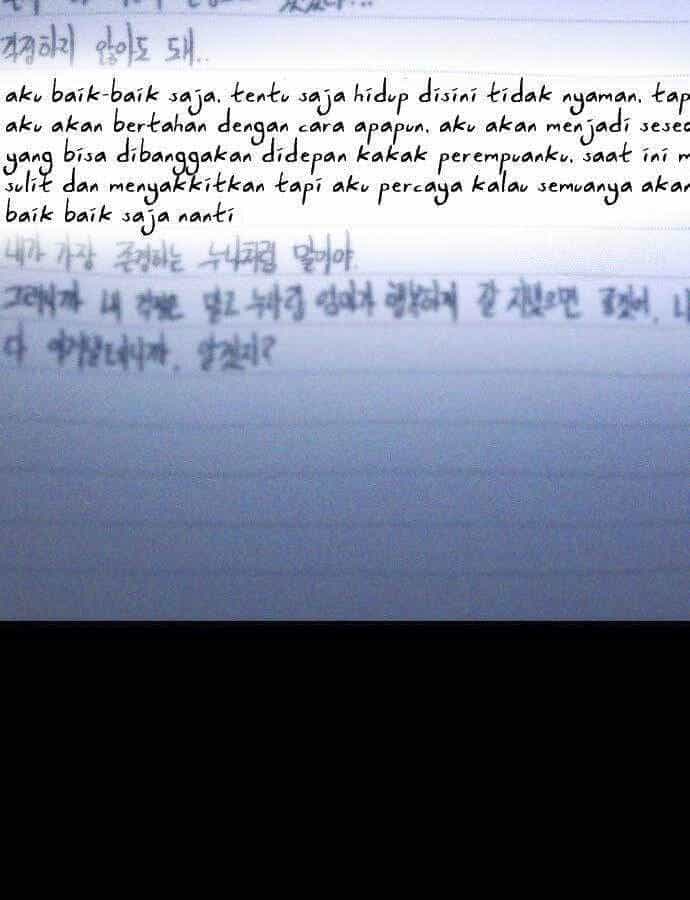 걱정하지 않아도 돼..
aku baik-baik saja. tentu saja hidup disini tidak nyaman. tap
aku akan bertahan dengan cara apapun. aku akan menjadi
yang bisa dibanggakan didepan kakak perempuanku. saat ini m
sulit dan menyakkitkan tapi aku percaya kalau semuanya akan
baik baik saja nanti
내가 가장 존경하는 누나처럼 말이야.
그러니까 내 걱정은 말고 누나랑 엄마가 행복하게 잘 지냈으면 좋겠어. 나
다 이겨낼테니까, 알겠지?